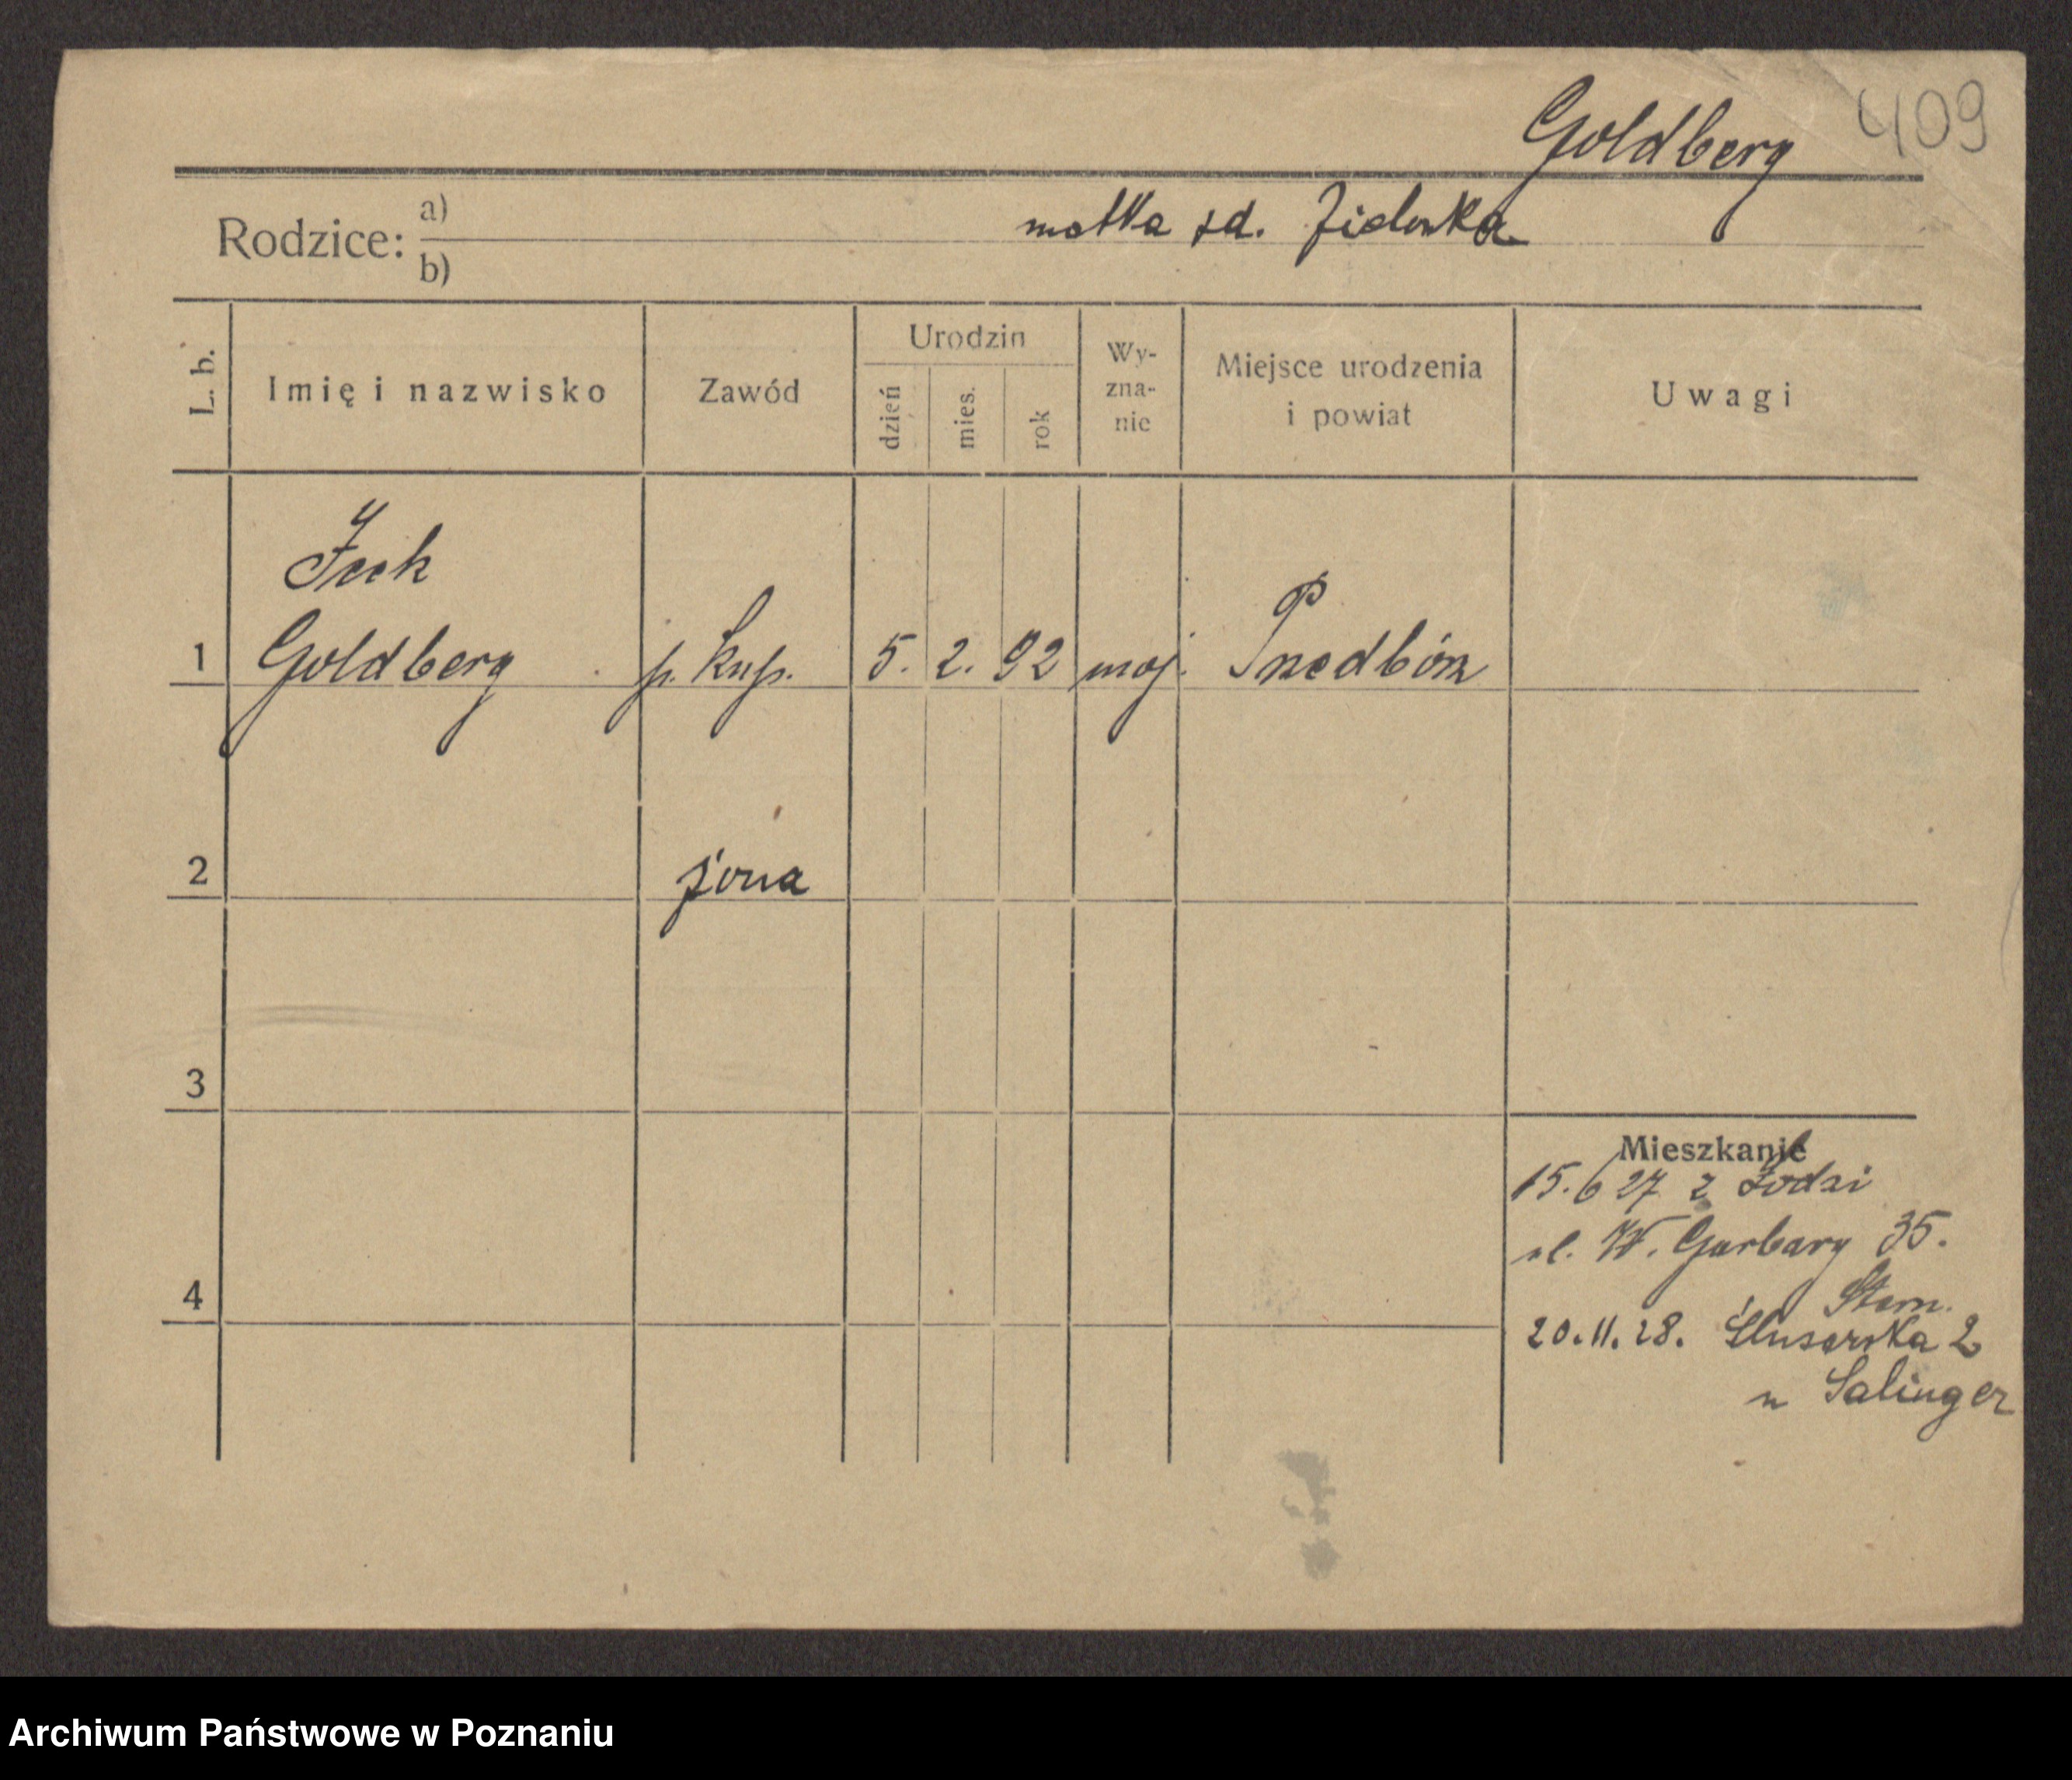 409
Goldberg
Rodzice: a)
b)
matka zd. Zielonka
L. b.
Imię i nazwisko
Zawód
Urodzin
dzień
mies.
rok
Wy-
zna-
nie
Miejsce urodzenia
i powiat
Uwagi
Icek
1 Goldberg p. kup. 5. 2. 92 moj. Przedbórz
2 żona
3
4
Mieszkanie
15.6 27 z Łodzi
ul. W. Garbary 35.
Stam.
20.11.28. Ślusarska 2
u Salinger
Archiwum Państwowe w Poznaniu